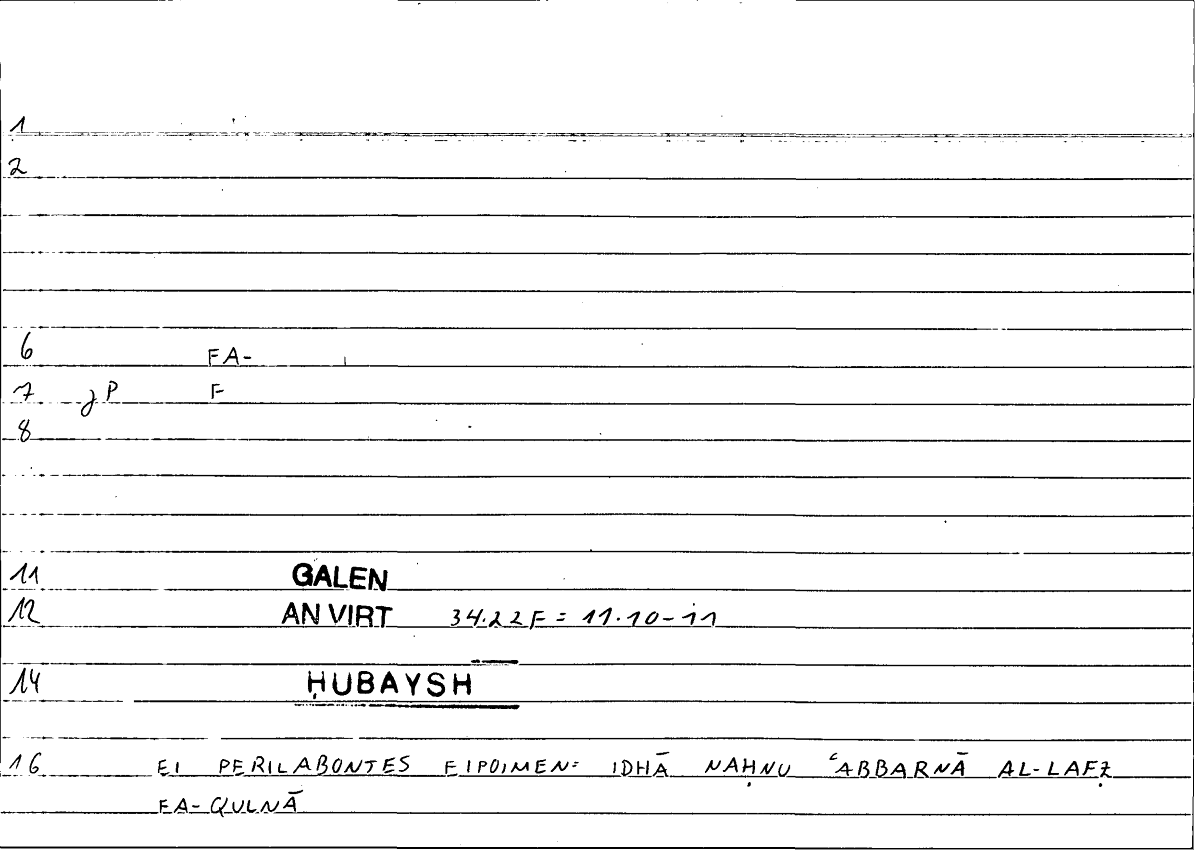 1
2
6 FA-
7 P F
8
11 GALEN
12 AN VIRT 34.22F = 11.10-11
14 ḤUBAYSH
16 EI PERILABONTES EIPOIMEN: IDHĀ NAḤNU ʿABBARNĀ AL-LAFẒ
FA-QULNĀ